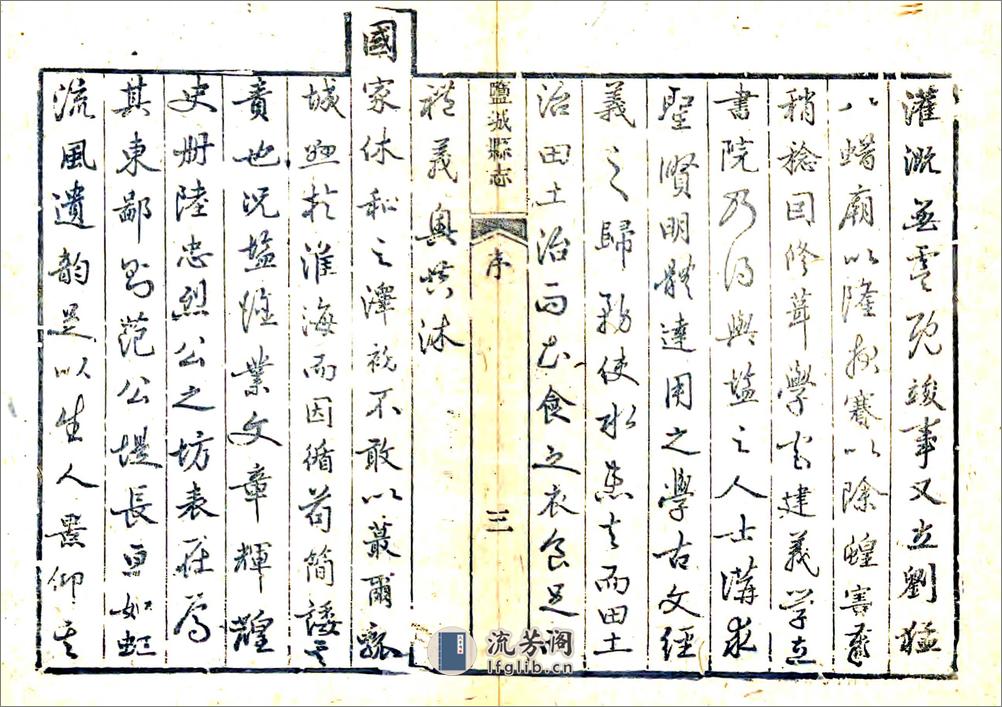 灌溉並臺既竣事又立劉猛
八蜡廟以隆報賽以除蝗害
稍稔因修葺學宮建義學立
書院乃得與鹽之人士講求
聖賢明體達用之學古文經
義之歸務使水患去而田土
治田土治而民食足衣食足
禮義興共沐
鹽城縣志
序
三
國家休和之澤視不敢以蕞爾瓠
城處於淮海而因循苟簡諉其
責也況鹽雖業文章輝煌
史册陸忠烈公之坊表在焉
其東鄙則范公堤長亘如虹
流風遺韵是以生人景仰其
流芳阁
lfglib.cn